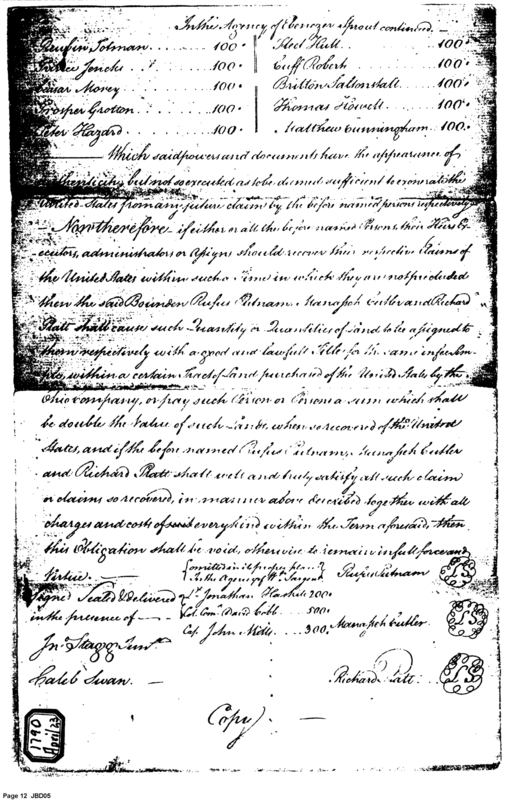 In the Agency of Ebenezer Sproat continued. —
Totman 100. Fleet Hull 100.
Jencks 100. Cuff Roberts 100.
Caesar Morey 100. Britton Saltonstall 100.
Prosper Grotton 100. Thomas Howell 100.
Peter Hazard 100. Matthew Cunningham 100.
Which said powers and documents have the appearance of
authenticity but not so executed as to be deemed sufficient to exonerate the
United States from any future claim by the before named persons respectively
Now therefore if either or all the before named Persons, their Heirs Ex-
ecutors, administrators or assigns should recover their respective Claims of
the United States within such a Time in which they are not precluded
then the said Bounden Rufus Putnam, Manasseh Cutler and Richard
Platt shall cause such Quantity or Quantities of Land to be assigned to
them respectively with a good and lawfull Title for the same in fee Sim-
ple, within a certain Tract of Land purchased of the United States by the
Ohio Company, or pay such Person or Persons a sum which shall
be double the Value of such Lands, when so recovered of the United
States, and if the before named Rufus Putnam, Manasseh Cutler
and Richard Platt shall well and truly satisfy all such claim
or claims so recovered, in manner above described together with all
charges and costs of every kind within the Term aforesaid, then
this Obligation shall be void, otherwise to remain in full force and
Virtue. — { omitted in its proper place } Rufus Putnam LS
In the Agency of W. Sargent
Signed Seald & delivered Lt. Jonathan Haskill 200.
in the presence of — Col. Com. David Cobb 500. Manasseh Cutler LS
Cap. John Mills 300.
Jno. Stagg Junr.
Caleb Swan. — Richard Platt LS
(Copy) —
1790
April 23
Page 12 JBD05